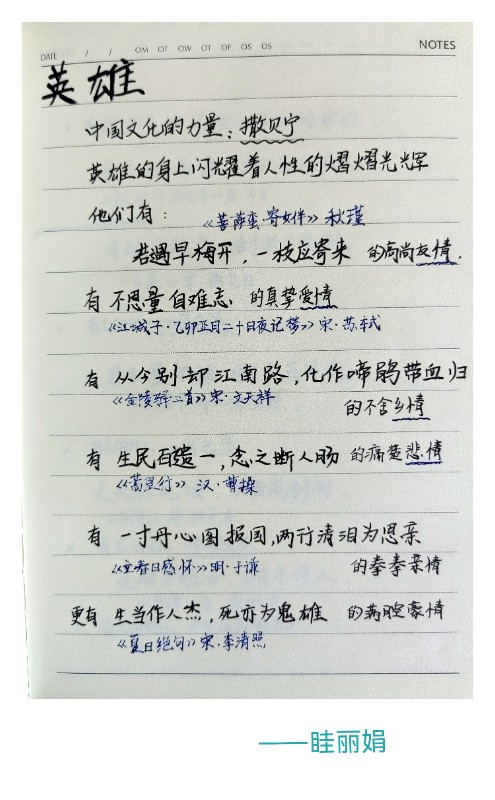 DATE / / OM OT OW OT OF OS OS
NOTES
英雄
中国文化的力量：撒贝宁
英雄的身上闪耀着人性的熠熠光辉
他们有：
《菩萨蛮·寄女伴》秋瑾
若遇早梅开，一枝应寄来 的高尚友情.
有 不思量自难忘 的真挚爱情
《江城子·乙卯正月二十日夜记梦》宋·苏轼
有 从今别却江南路，化作啼鹃带血归
《金陵驿二首》宋·文天祥
的不舍乡情
有 生民百遗一，念之断人肠 的痛楚悲情
《蒿里行》 汉·曹操
有 一寸丹心图报国，两行清泪为思亲
《立春日感怀》明·于谦
的拳拳亲情
更有 生当作人杰，死亦为鬼雄 的满腔豪情
《夏日绝句》宋·李清照
——眭丽娟